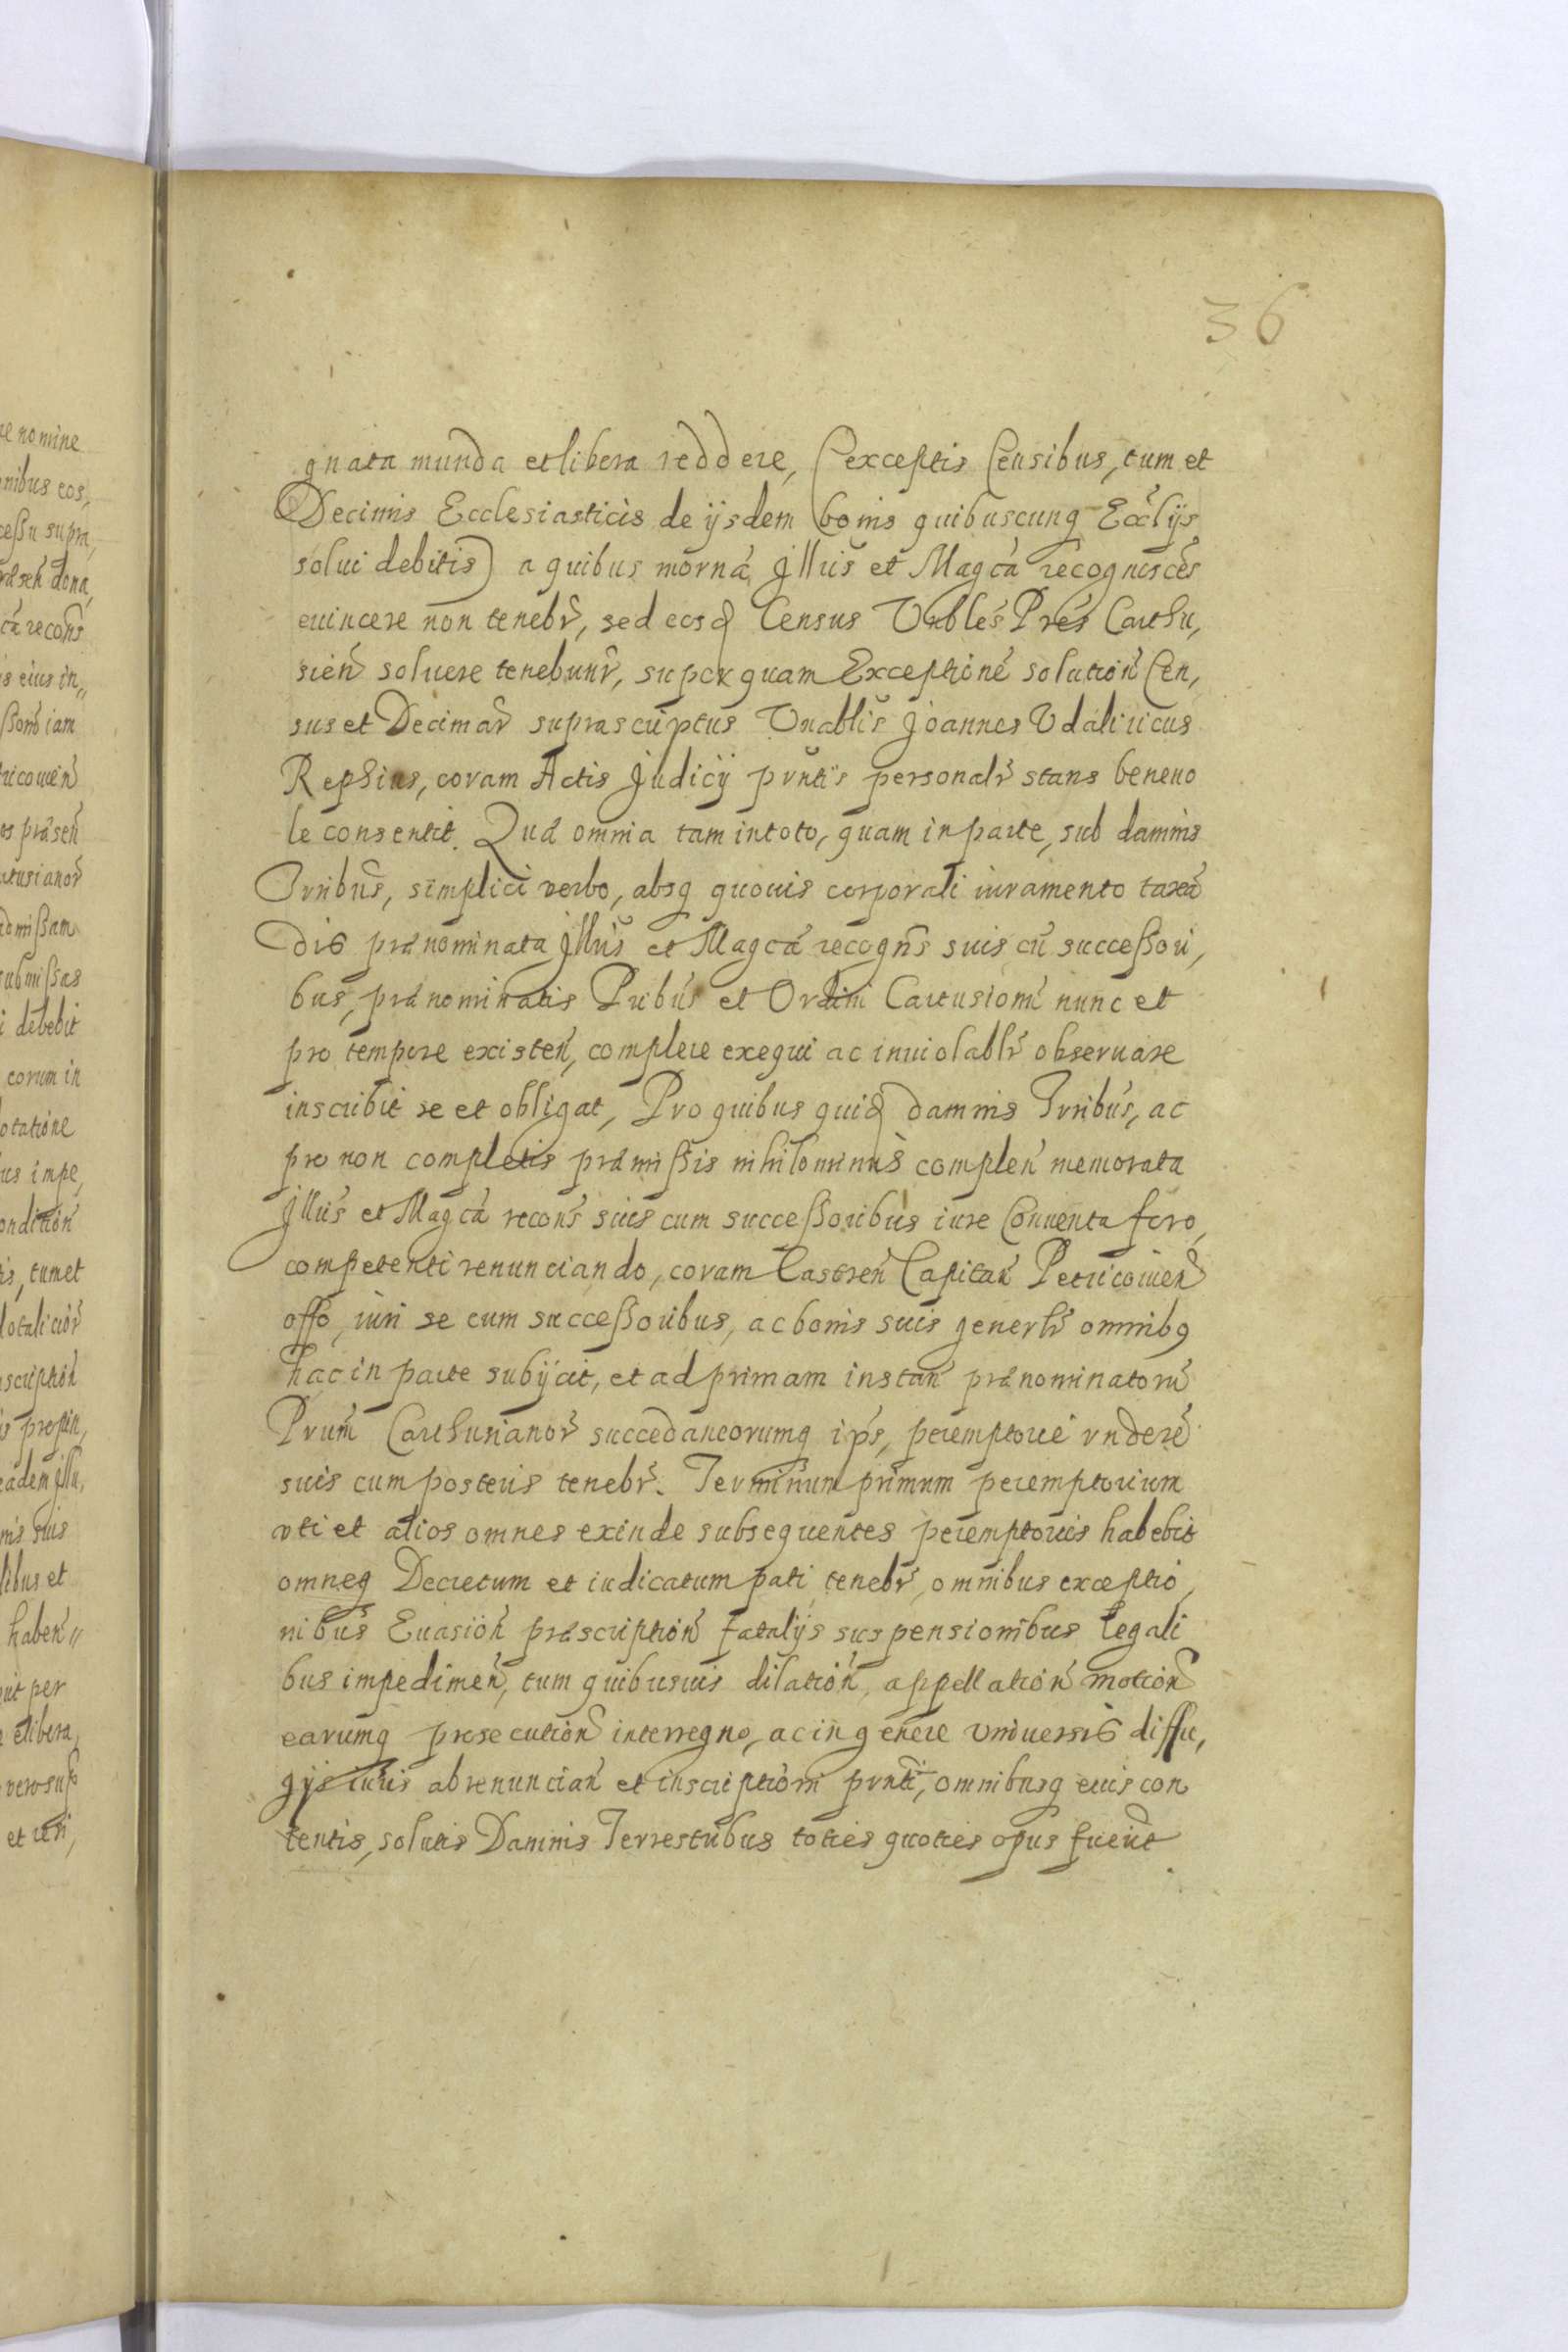 36
gnata munda et libera reddere, (exceptis Censibus, tum et
Decimis Ecclesiasticis de ijsdem bonis quibuscunq Eccl̃ijs
solui debitis) a quibus Illũs et Magcã recognoscẽs
euincere non tenebr̃, sed eosq Census Vnbles Prẽs Carthu,
sien̄ soluere tenebunr̃, super quam Exceptionẽ solution̄ Cen,
sus et Decimar̃ suprascriptus Vnablis Joannes Vdalricus
Rephius, coram Actis Judicij pñtis personalr̃ stans beneuo
le consentit. Quæ omnia tam in toto, quam in parte, sub damnis
Trribus̃, simplici verbo, absq quouis corporali iuramento taxã
dis prænominata Illũs et Magcã recogns̃ suis cũ successori,
bus, prænominatis Pribũs et Ordini Cartusiom̃ nunc et
pro tempore existen̄, complere exequi ac inuiolablr̃ obseruare
inscribit se et obligat, Pro quibus quidẽ damnis Trribus̃, ac
pro non completis præmissis nihilominus complen̄ memorata
Illũs et Magcã recons̃ suis cum successoribus iure Conuenta foro,
competenti renunciando, coram Castren̄ Capitan̄ Petricouien̄
offo, iuri se cum successoribus, ac bonis suis generlr̃ omnibq
hac in parte subijcit, et ad primam instan̄ prænominatorũ
Prum̃ Carthusianor̃ succedaneorumq ips̃, peremptorie rnderẽ
suis cum posteris tenebr̃. Terminum primum peremptorium
vti et alios omnes exinde subsequentes peremptorios habebit
omneq Decretum et iudicatum pati tenebr̃, omnibus exceptio,
nibus Euasion̄ præscription̄ fatalijs suspensionibus legali
bus impedimen̄, tum quibusuis dilation̄, appellation̄ motion̄
earumq prosecution̄ interregno, ac in genere vniuersis diffu,
gijs iuris abrenuncian̄ et inscriptioni pñti, omnibusq eius con
tentis, solutis Damnis Terrestribus toties quoties opus fuerit